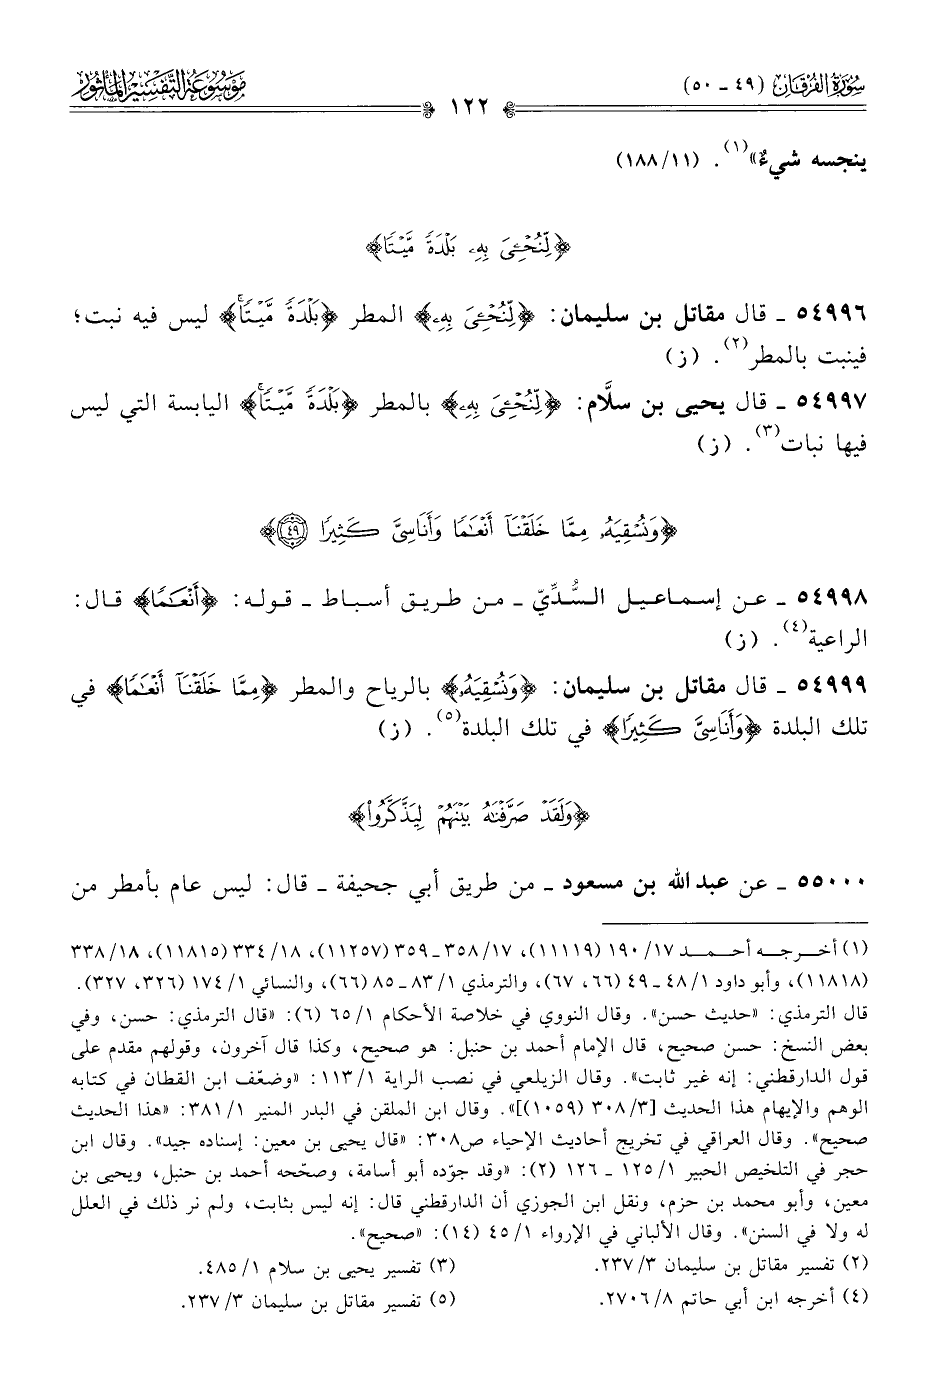 سُورَةُ الفُرْقَانِ (٤٩ - ٥٠)
مَوْسُوعَةُ التَّفْسِيرِ المَأْثُورِ
١٢٢
ينجسه شيءٌ»(١). (١٨٨/١١)
﴿لِّنُحْـِۧيَ بِهِۦ بَلْدَةً مَّيْتًا﴾
٥٤٩٩٦ - قال مقاتل بن سليمان: ﴿لِّنُحْـِۧيَ بِهِۦ﴾ المطر ﴿بَلْدَةً مَّيْتًا﴾ ليس فيه نبت؛
فينبت بالمطر(٢). (ز)
٥٤٩٩٧ - قال يحيى بن سلَّام: ﴿لِّنُحْـِۧيَ بِهِۦ﴾ بالمطر ﴿بَلْدَةً مَّيْتًا﴾ اليابسة التي ليس
فيها نبات(٣). (ز)
﴿وَنُسْقِيَهُۥ مِمَّا خَلَقْنَآ أَنْعَٰمًا وَأَنَاسِىَّ كَثِيرًا ٤٩﴾
٥٤٩٩٨ - عن إسماعيل السُّدِّيّ - من طريق أسباط - قوله: ﴿أَنْعَٰمًا﴾ قال:
الراعية(٤). (ز)
٥٤٩٩٩ - قال مقاتل بن سليمان: ﴿وَنُسْقِيَهُۥ﴾ بالرياح والمطر ﴿مِمَّا خَلَقْنَآ أَنْعَٰمًا﴾ في
تلك البلدة ﴿وَأَنَاسِىَّ كَثِيرًا﴾ في تلك البلدة(٥). (ز)
﴿وَلَقَدْ صَرَّفْنَٰهُ بَيْنَهُمْ لِيَذَّكَّرُوا۟﴾
٥٥٠٠٠ - عن عبد الله بن مسعود - من طريق أبي جحيفة - قال: ليس عام بأمطر من
(١) أخرجه أحمد ١٧/ ١٩٠ (١١١١٩)، ١٧/ ٣٥٨ - ٣٥٩ (١١٢٥٧)، ١٨/ ٣٣٤ (١١٨١٥)، ١٨/ ٣٣٨
(١١٨١٨)، وأبو داود ١/ ٤٨ - ٤٩ (٦٦، ٦٧)، والترمذي ١/ ٨٣ - ٨٥ (٦٦)، والنسائي ١/ ١٧٤ (٣٢٦، ٣٢٧).
قال الترمذي: «حديث حسن». وقال النووي في خلاصة الأحكام ١/ ٦٥ (٦): «قال الترمذي: حسن، وفي
بعض النسخ: حسن صحيح، قال الإمام أحمد بن حنبل: هو صحيح، وكذا قال آخرون، وقولهم مقدم على
قول الدارقطني: إنه غير ثابت». وقال الزيلعي في نصب الراية ١/ ١١٣: «وضعّف ابن القطان في كتابه
الوهم والإيهام هذا الحديث [٣/ ٣٠٨ (١٠٥٩)]». وقال ابن الملقن في البدر المنير ١/ ٣٨١: «هذا الحديث
صحيح». وقال العراقي في تخريج أحاديث الإحياء ص٣٠٨: «قال يحيى بن معين: إسناده جيد». وقال ابن
حجر في التلخيص الحبير ١/ ١٢٥ - ١٢٦ (٢): «وقد جوّده أبو أسامة، وصحّحه أحمد بن حنبل، ويحيى بن
معين، وأبو محمد بن حزم، ونقل ابن الجوزي أن الدارقطني قال: إنه ليس بثابت، ولم نر ذلك في العلل
له ولا في السنن». وقال الألباني في الإرواء ١/ ٤٥ (١٤): «صحيح».
(٢) تفسير مقاتل بن سليمان ٣/ ٢٣٧.
(٣) تفسير يحيى بن سلام ١/ ٤٨٥.
(٤) أخرجه ابن أبي حاتم ٨/ ٢٧٠٦.
(٥) تفسير مقاتل بن سليمان ٣/ ٢٣٧.